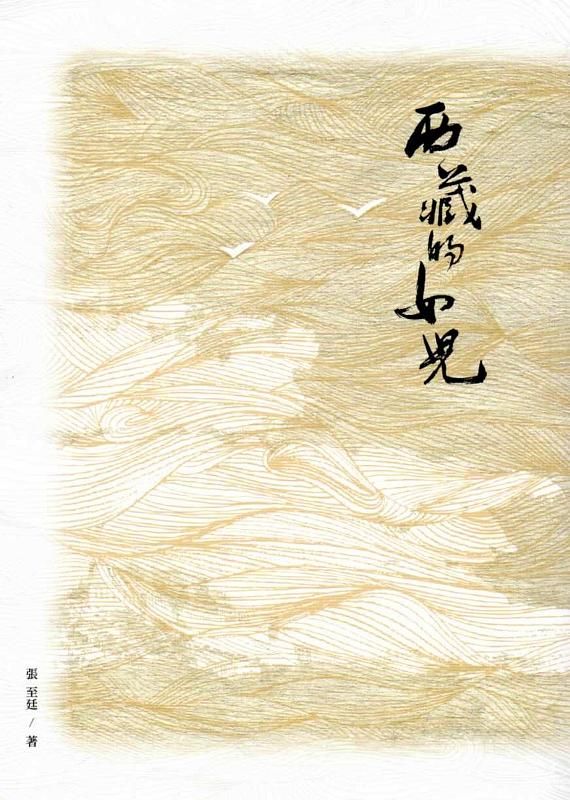 西藏的女兒
張至廷/著